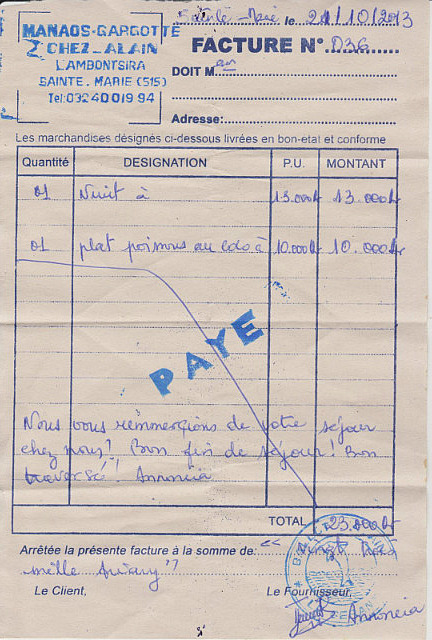 MANAOS-GARGOTTE
CHEZ-ALAIN
LAMBONTSIRA
SAINTE-MARIE (515)
Tel:032 40 019 94
Sainte-Marie le 21/10/2013
FACTURE N° 036
DOIT M
Adresse:
Les marchandises désignés ci-dessous livrées en bon-etat et conforme
Quantité DESIGNATION P.U. MONTANT
01 Nuit à 13.000Ar 13.000Ar
01 plat poissons au coco à 10.000Ar 10.000Ar
PAYE
Nous vous remmerçions de votre séjour
chez nous! Bon fin de séjour! Bon
traversé! Annoncia
TOTAL 23.000Ar
Arrêtée la présente facture à la somme de: << Vingt trois
mille Ariary "
Le Client, Le Fournisseur,
Annoncia